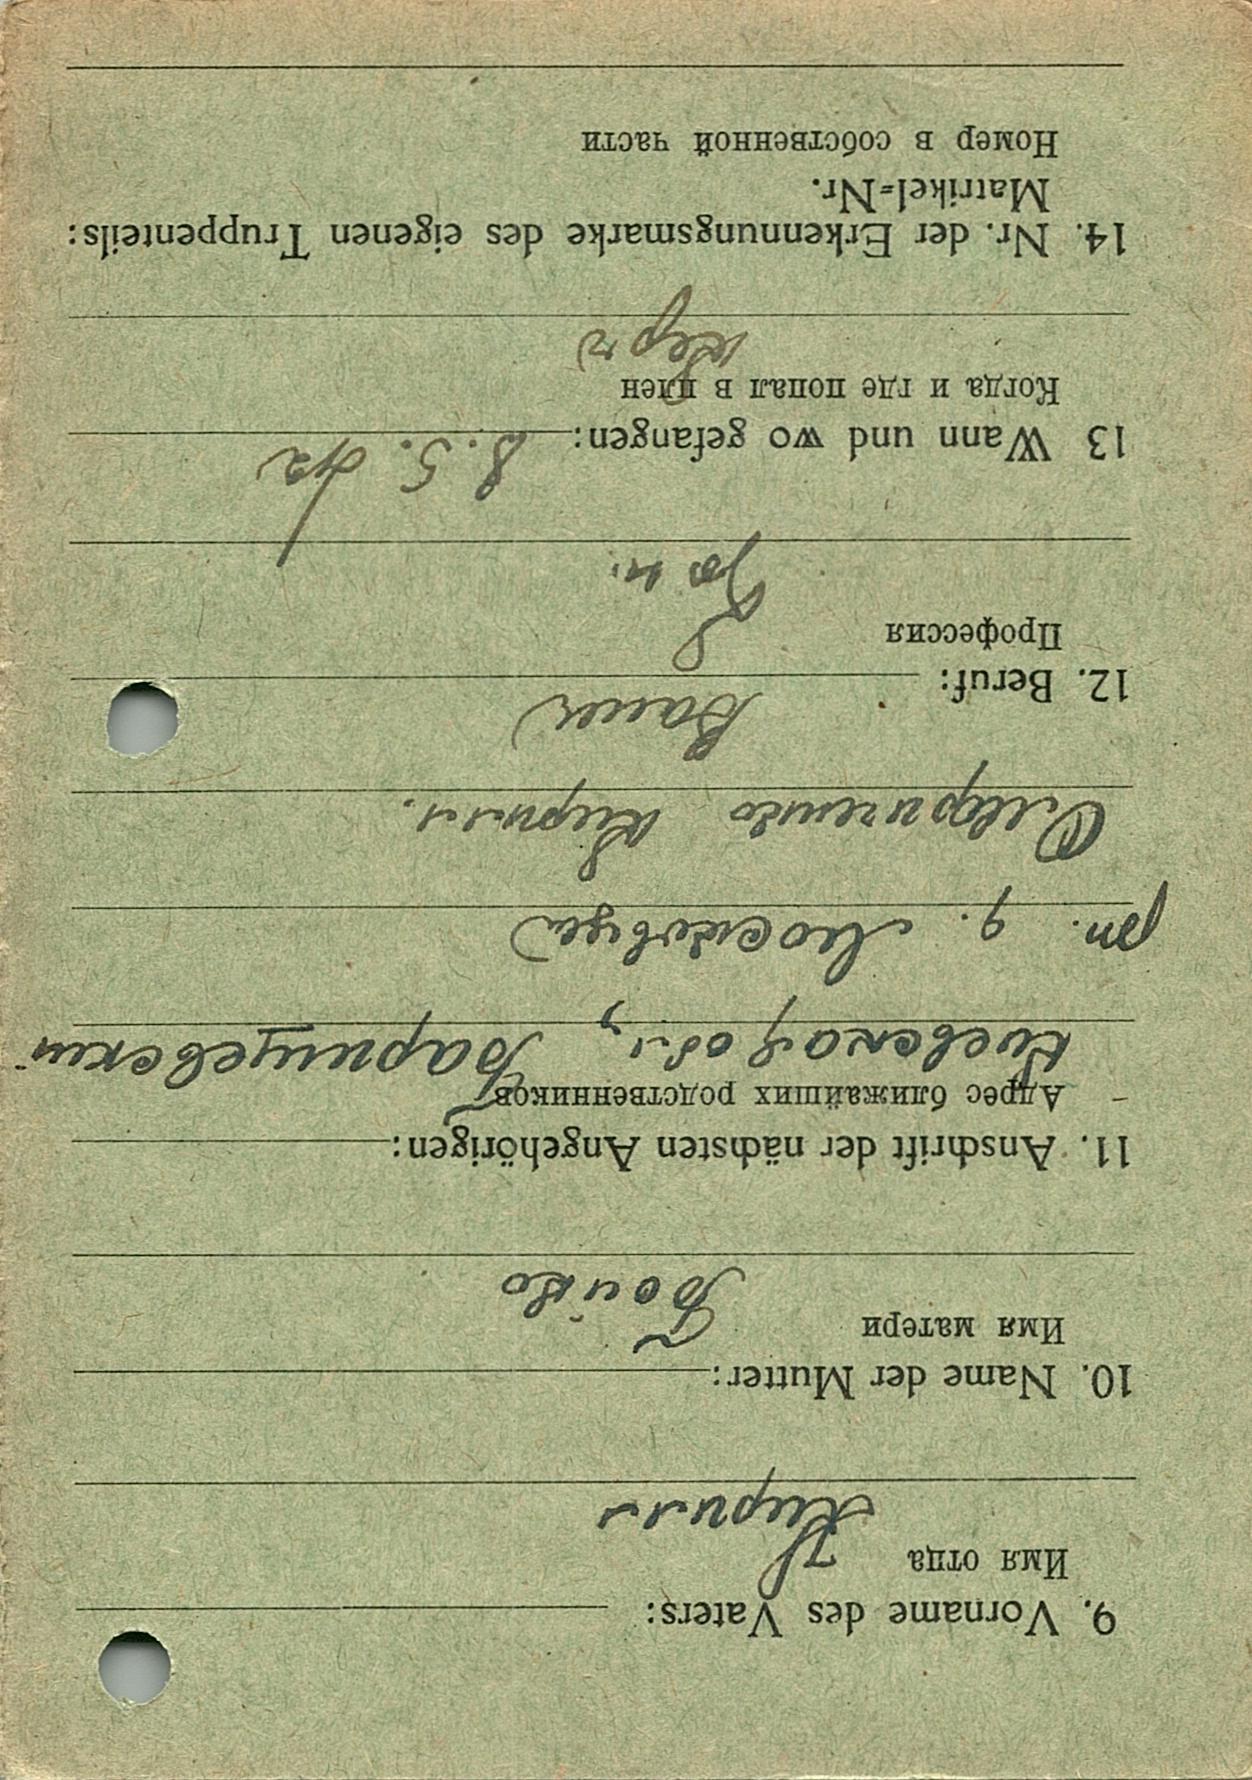 9. Vorname des Vaters:
Имя отца
Кирилл
10. Name der Mutter:
Имя матери
Бойко
11. Anschrift der nächsten Angehörigen:
Адрес ближайших родственников
Киевская обл., Барищевский
рн. д. Московця
Кирилл.
12. Beruf:
Bauer
Профессия
13 Wann und wo gefangen: 8. 5. 42
Когда и где попал в плен
Керч
14. Nr. der Erkennungsmarke des eigenen Truppenteils:
Matrikel-Nr.
Номер в собственной части